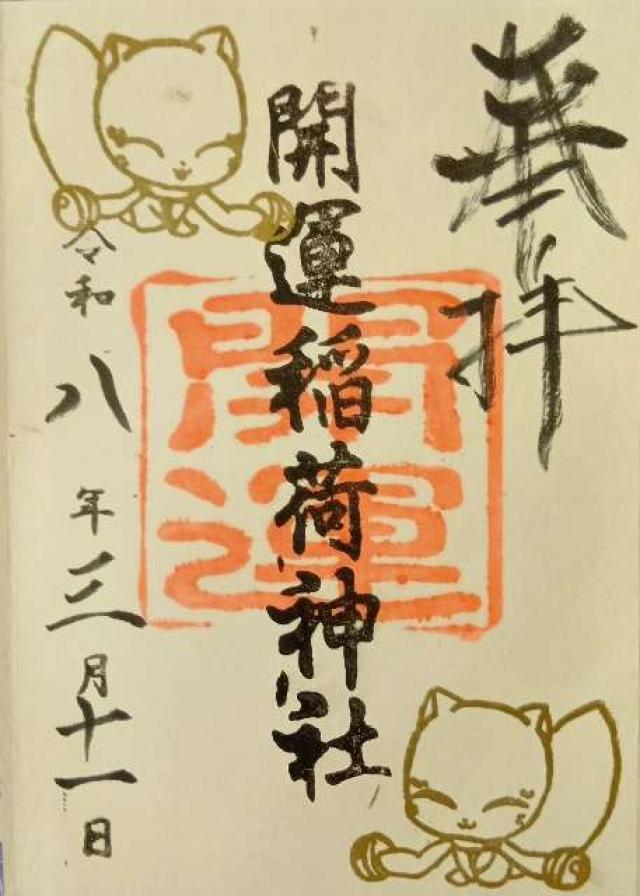 奉拝
開運稲荷神社
開運
令和八年三月十一日